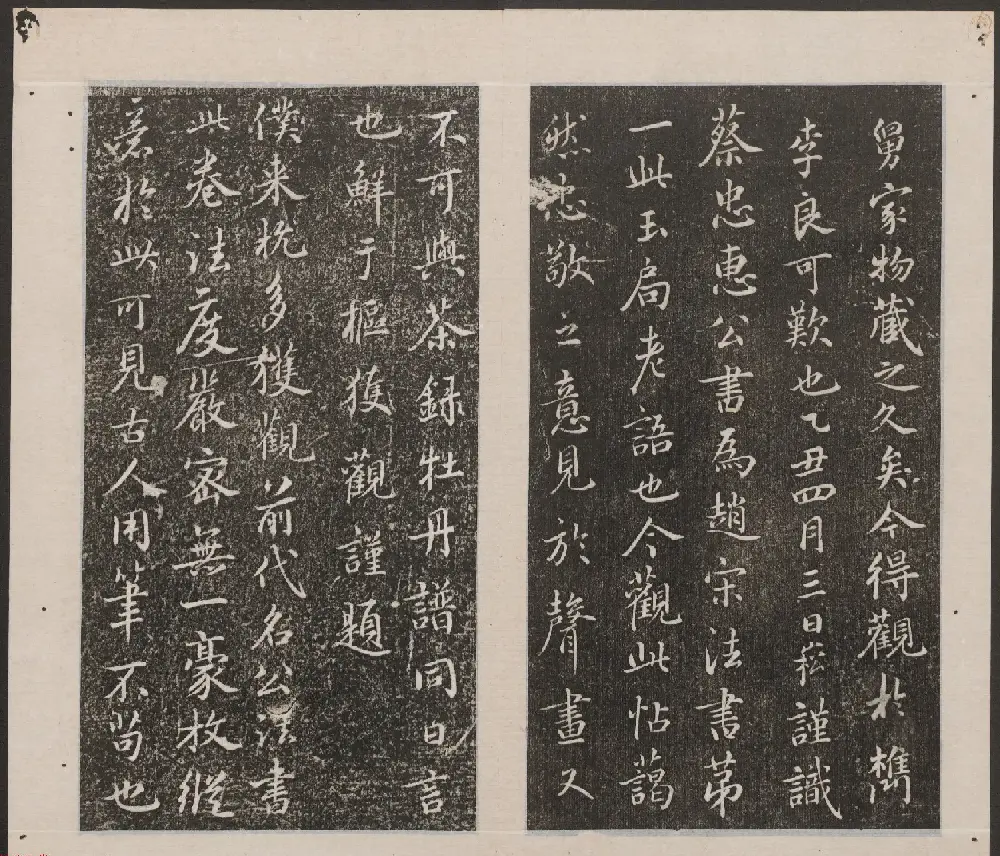 舅家物藏之久矣今得觀於檇
李良可歎也乙丑四月三日崧謹識
蔡忠惠公書為趙宋法書苐
一此玉局老語也今觀此帖藹
然忠敬之意見於聲畫又
不可與茶録牡丹譜同日言
也鮮于樞獲觀謹題
僕来杭多獲觀前代名公法書
此卷法度嚴密無一豪放縱
意於此可見古人用筆不苟也